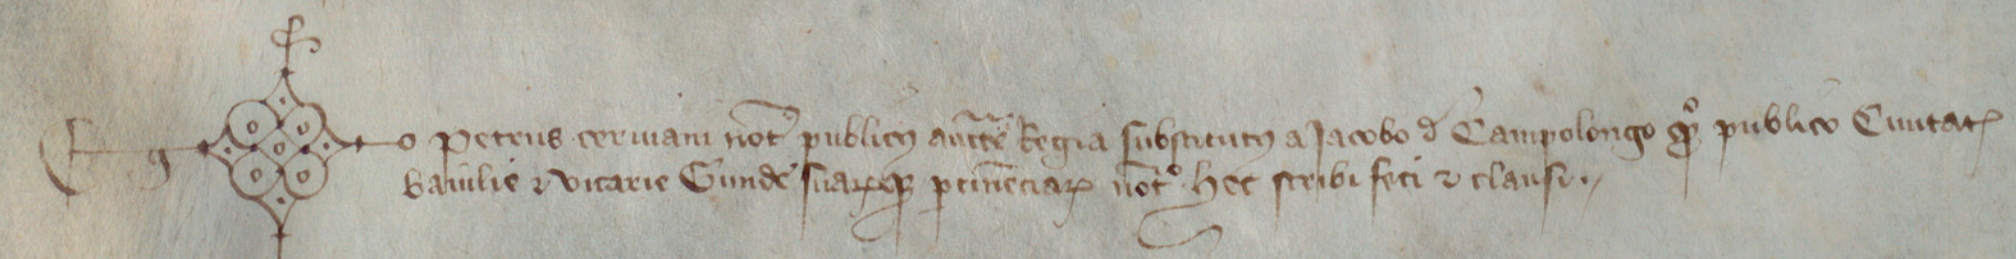 Ego Petrus cerviani not' publicus aucttē Regia substitutus a Jacobo d' Campolongo publico Civitatꝝ
baiulie ⁊ vicarie Gunde' suarꝝqꝫ ꝑtinēciarꝝ not° hec scribi feci ⁊ clausi.